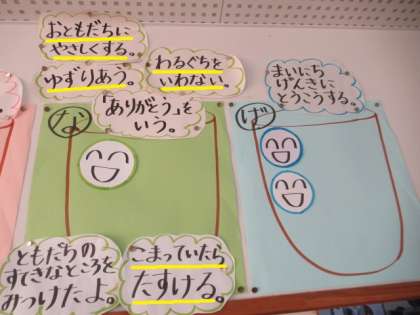 おともだちに
やさしくする。
ゆずりあう。
わるぐちを
いわない。
「ありがとう」を
いう。
な
ともだちの
すてきなところを
みつけたよ。
こまっていたら
たすける。
まいにち
げんきに
とうこうする。
げ